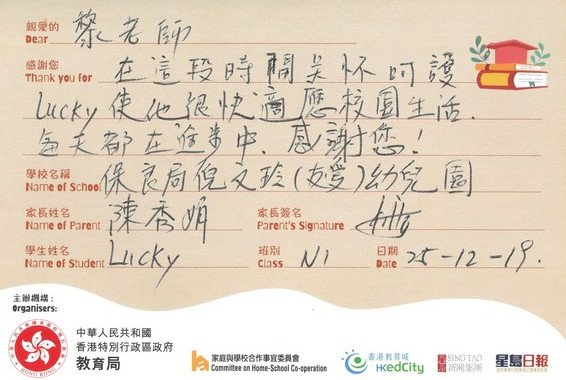 親愛的
Dear 黎老師
感謝您
Thank you for 在這段時間关怀呵護
Lucky使他很快適應校園生活.
每天都在進步中.感謝您!
學校名稱
Name of School 保良局倪文玲(友愛)幼兒園
家長姓名 家長簽名
Name of Parent 陳秀娟 Parent's Signature
學生姓名 班別 日期
Name of Student Lucky Class N1 Date 25-12-19.
主辦機構:
Organisers:
HONG KONG
中華人民共和國
香港特別行政區政府
教育局
家庭與學校合作事宜委員會
Committee on Home-School Co-operation
香港教育城
HKedCity
星島 SING TAO
新聞集團
星島日報